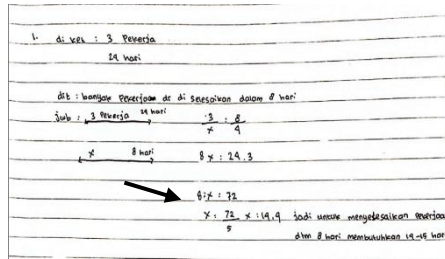 1. di ket : 3 Pekerja
24 hari
dit : banyak pekerjaan dr di selesaikan dalam 8 hari
jwb : 3 Pekerja 24 hari
3 : 8
x 4
x 8 hari
8x : 24.3
8:x : 72
x : 72 x : 14.4 jadi untuk menyelesaikan pekerjaan
5
dlm 8 hari membutuhkan 14-15 har